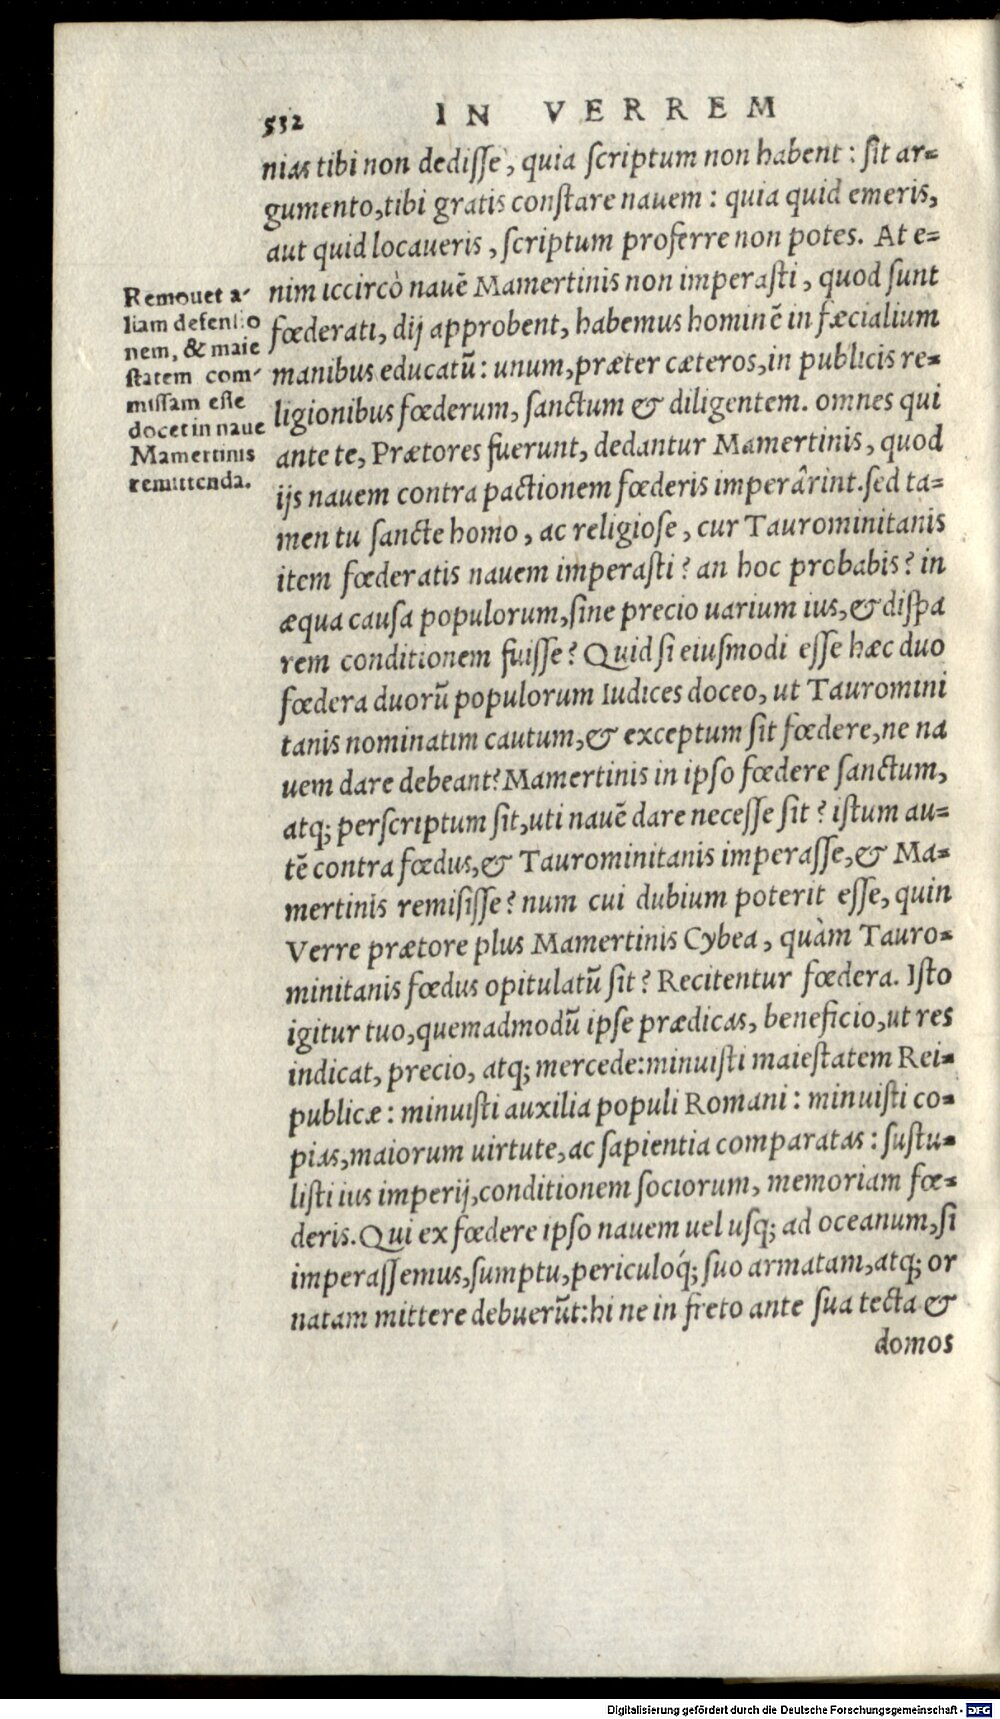 532 IN VERREM
nias tibi non dedisse, quia scriptum non habent: sit ar-
gumento, tibi gratis constare nauem: quia quid emeris,
aut quid locaueris, scriptum proferre non potes. At e-
nim iccircò nauē Mamertinis non imperasti, quod sunt
fœderati, dij approbent, habemus hominē in fæcialium
manibus educatū: unum, præter cæteros, in publicis re-
ligionibus fœderum, sanctum & diligentem. omnes qui
ante te, Prætores fuerunt, dedantur Mamertinis, quod
ijs nauem contra pactionem fœderis imperârint. sed ta-
men tu sancte homo, ac religiose, cur Taurominitanis
item fœderatis nauem imperasti? an hoc probabis? in
æqua causa populorum, sine precio uarium ius, & dispa
rem conditionem fuisse? Quid si eiusmodi esse hæc duo
fœdera duorū populorum Iudices doceo, ut Tauromini
tanis nominatim cautum, & exceptum sit fœdere, ne na
uem dare debeant? Mamertinis in ipso fœdere sanctum,
atq; perscriptum sit, uti nauē dare necesse sit? istum au-
tē contra fœdus, & Taurominitanis imperasse, & Ma-
mertinis remisisse? num cui dubium poterit esse, quin
Verre prætore plus Mamertinis Cybea, quàm Tauro-
minitanis fœdus opitulatū sit? Recitentur fœdera. Isto
igitur tuo, quemadmodū ipse prædicas, beneficio, ut res
indicat, precio, atq; mercede: minuisti maiestatem Rei-
publicæ: minuisti auxilia populi Romani: minuisti co-
pias, maiorum uirtute, ac sapientia comparatas: sustu-
listi ius imperij, conditionem sociorum, memoriam fœ-
deris. Qui ex fœdere ipso nauem uel usq; ad oceanum, si
imperassemus, sumptu, periculoq́; suo armatam, atq; or
natam mittere debuerūt: hi ne in freto ante sua tecta &
domos
Remouet a-
liam defensio
nem, & maie
statem com-
missam esse
docet in naue
Mamertinis
remittenda.
Digitalisierung gefördert durch die Deutsche Forschungsgemeinschaft - DFG